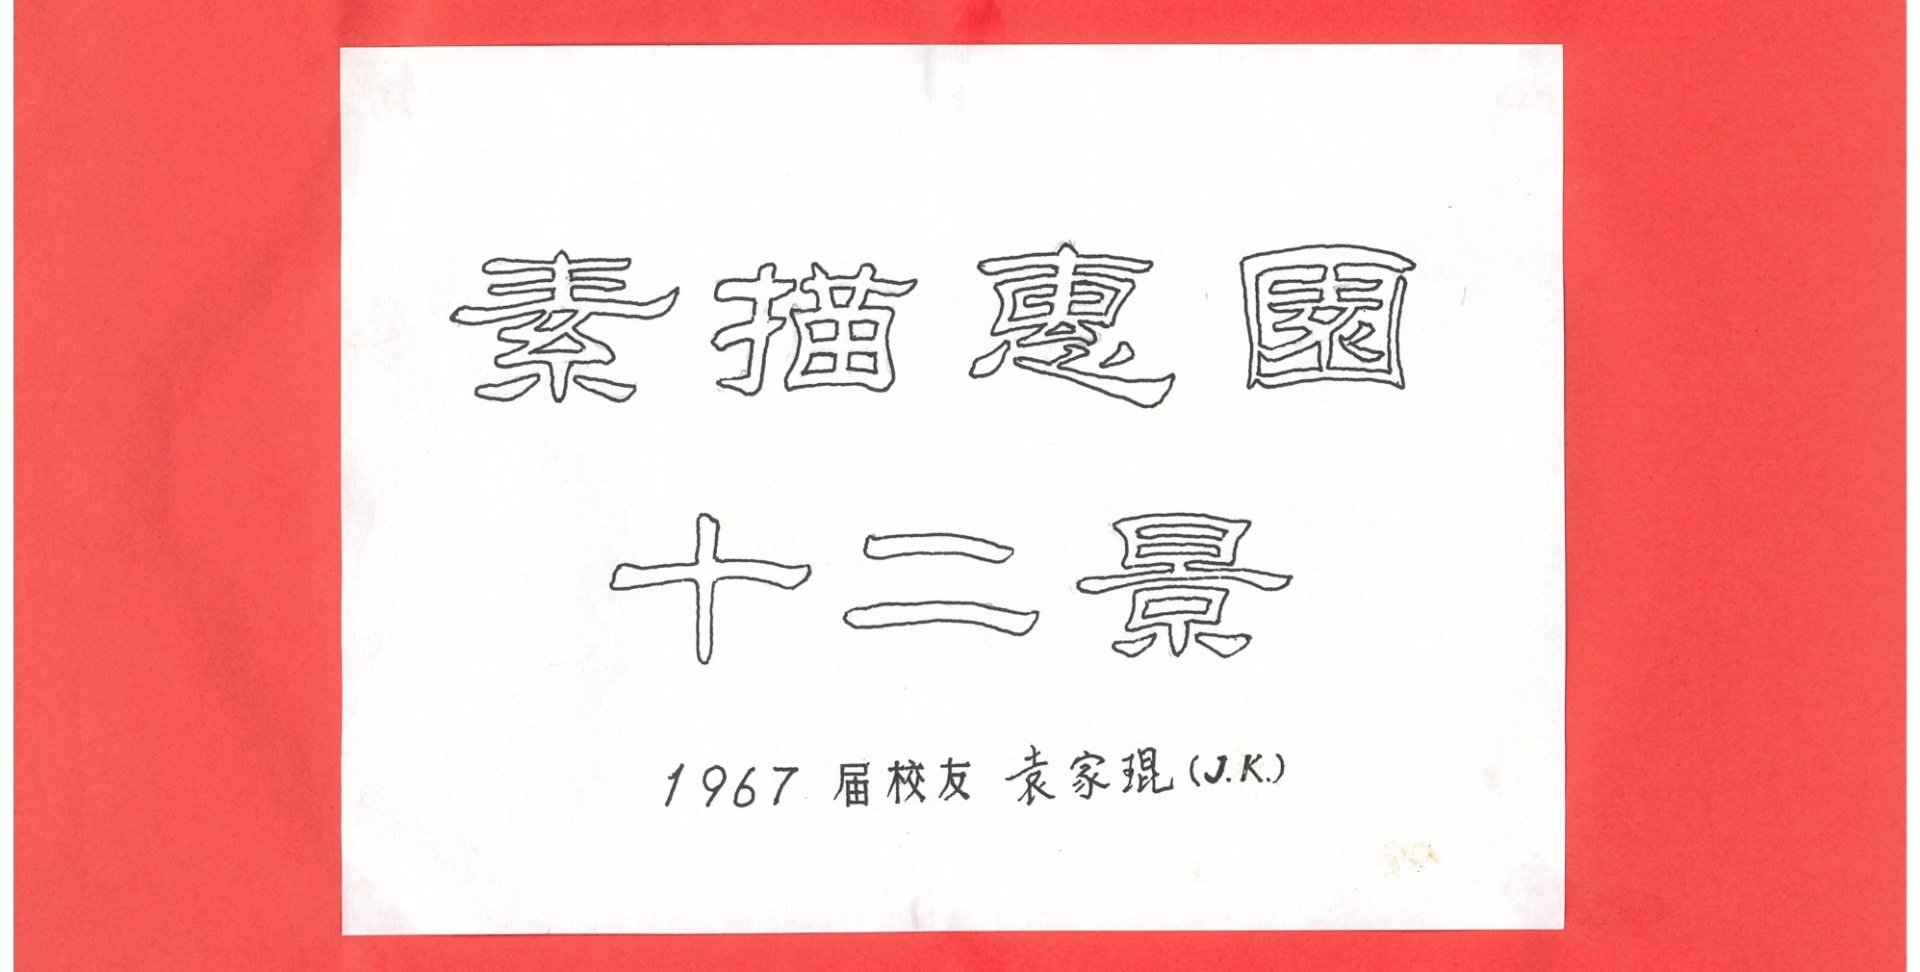 素描惠園
十二景
1967 届校友 袁家琨 (J.K.)